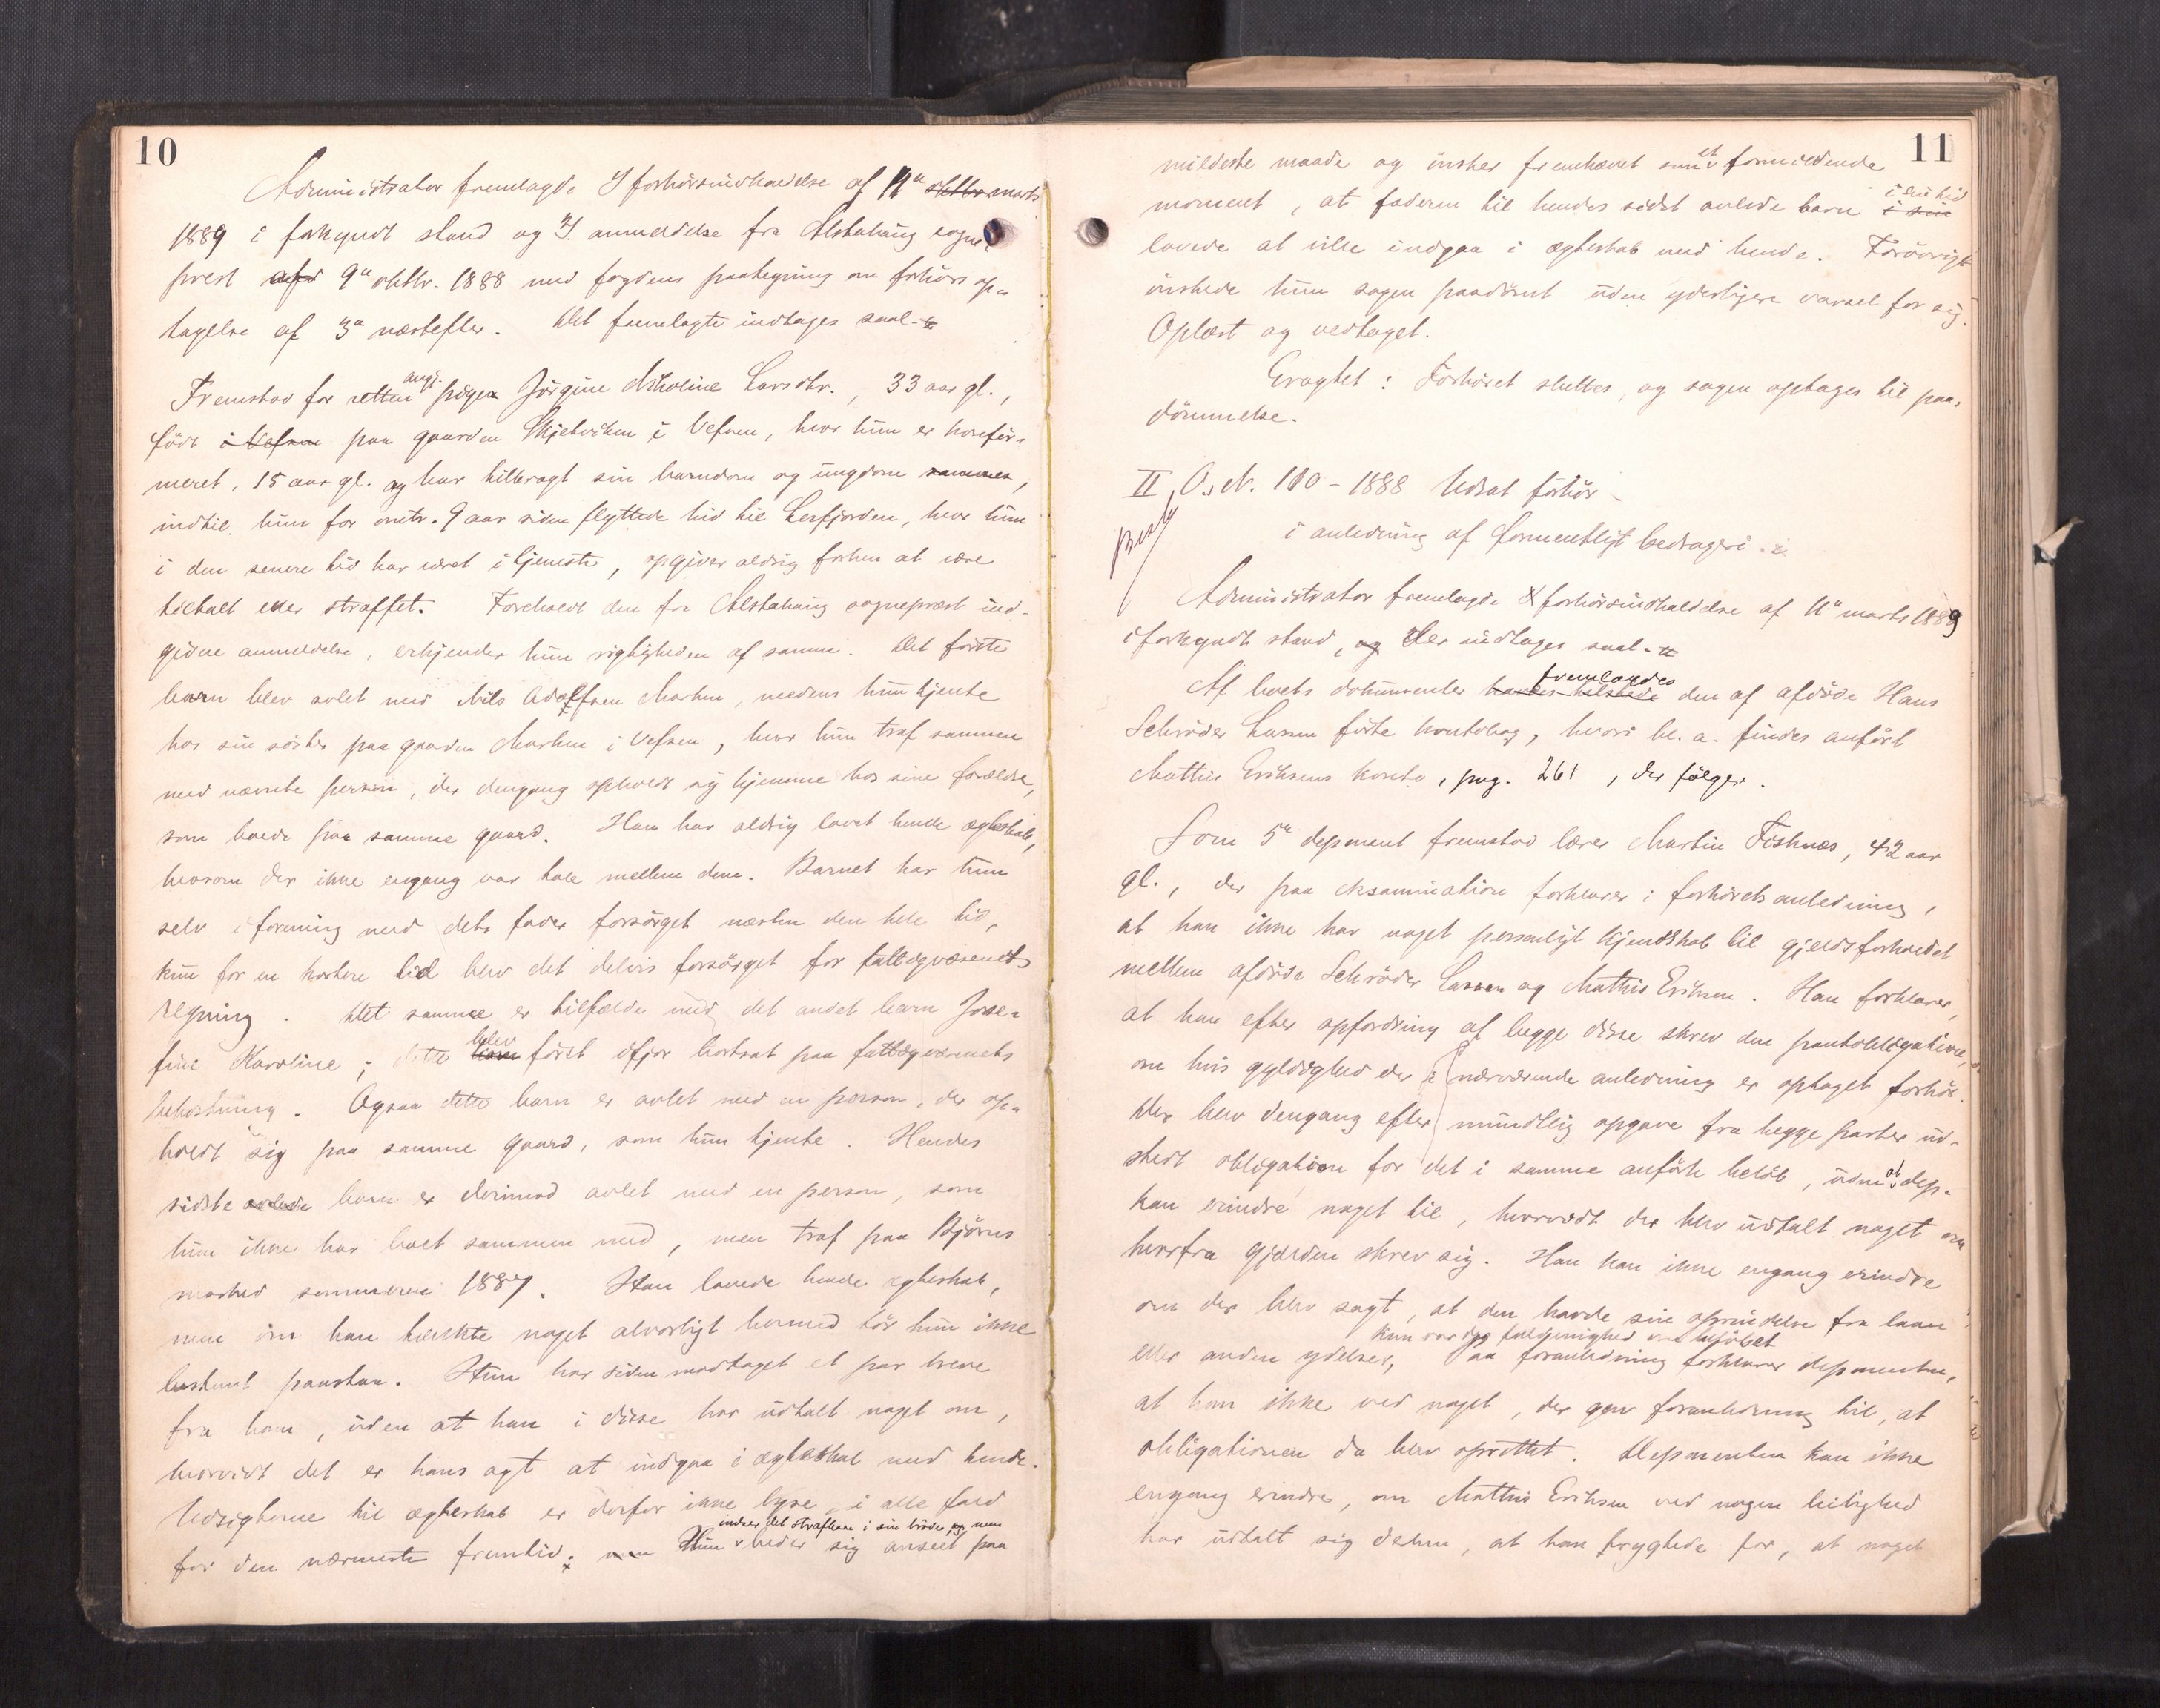 10
Administrator fremlagde forhørsindkaldelse af 11te oktbr marts
1889 i forkyndt stand og anmeldelse fra Alstahaug sogne-
prest afd 9de oktbr. 1888 med fogdens paategning om forhørs op-
tagelse af 3de næstefter. Det fremlagte indtages saal.
Fremstod for retten angj. pigen Jørgine Nikoline Larsdtr., 33 aar gl.,
født i Vefsen paa gaarden Skjetviken i Vefsen, hvor hun er konfir-
meret, 15 aar gl. og har tilbragt sin barndom og ungdom sammes,
indtil hun for omtr. 9 aar siden flyttede hid til Leirfjorden, hvor hun
i den senere tid har været i tjeneste, opgiver aldrig forhen at være
tiltalt eller straffet. Foreholdt den fra Alstahaug sogneprest ind-
givne anmeldelse, erkjender hun rigtigheden af samme. Det første
barn blev avlet med Nils Adolfsen Marken, medens hun tjente
hos sin søster paa gaarden Marken i Vefsen, hvor hun traf sammen
med nævnte person, der dengang opholdt sig hjemme hos sine forældre,
som boede paa samme gaard. Han har aldrig lovet hende ægteskab,
hvorom der ikke engang var tale mellem dem. Barnet har hun
selv i forening med dets fader forsørget næsten den hele tid,
kun for en kortere tid blev det delvis forsørget for fattigvæsenets
regning. Det samme er tilfælde med det andet barn Jose-
fine Karoline; dette barn blev først ifjor bortsat paa fattigvæsenets
bekostning. Ogsaa dette barn er avlet med en person, der op-
holdt sig paa samme gaard, som hun tjente. Hendes
sidste avlede barn er derimod avlet med en person, som
hun ikke har boet sammen med, men traf paa Bjørns
marked sommeren 1887. Han lovede hende ægteskab,
men om han tænkte noget alvorligt hermed tør hun ikke
bestemt paastaa. Hun har siden modtaget et par breve
fra ham, uden at han i disse har udtalt noget om,
hvorvidt det er hans agt at indgaa i ægteskab med hende.
Udsigterne til ægteskab er derfor ikke lyse, i alle fald
for den nærmeste fremtid. men Hun indser det strafbare i sin brøde, og men beder sig anseet paa
11
mildeste maade og ønsker fremhævet som et formildende
moment, at faderen til hendes sidst avlede barn i sin i sin tid
lovede at ville indgaa i ægteskab med hende. Forøvrigt
ønskede hun sagen paadømt uden yderligere varsel for sig.
Oplæst og vedtaget.
Eragtet: Forhøret sluttes, og sagen optages til paa-
dømmelse.
II, O.s. N. 110 - 1888 Udsat forhør
i anledning af formentligt bedrageri.
Administrator fremlagde forhørsindkaldelse af 11te marts 1889
i forkyndt stand, og der indtages saal.
Af boets dokumenter havdes tilstede fremlagdes den af afdøde Hans
Schrøder Larsen førte kontobog, hvori bl. a. findes anført
Mathis Eriksens konto, pag. 261, der følger.
Som 5te deponent fremstod lærer Martin Fisknæs, 42 aar
gl., der paa eksamination forklarer i forhørets anledning,
at han ikke har noget personligt kjendskab til gjældsforholdet
mellem afdøde Schrøder Larsen og Mathis Eriksen. Han forklarer,
at han efter opfordring af begge disse skrev den pantobligation,
om hvis gyldighed der i nærværende anledning er optaget forhør.
Der blev dengang efter mundtlig opgave fra begge parter ud-
stedt obligation for det i samme anførte beløb, uden at dep.
kan erindre noget til, hvorvidt der blev udtalt noget om
hvorfra gjælden skrev sig. Han kan ikke engang erindre
om der blev sagt, at den havde sin oprindelse fra laan
eller anden ydelser, kun var der fuld enighed om beløbet Paa foranledning forklarer deponenten,
at han ikke ved noget, der gav foranledning til, at
obligationen da blev oprettet. Deponenten kan ikke
engang erindre, om Mathis Eriksen ved nogen leilighed
har udtalt sig derhen, at han frygtede for, at noget